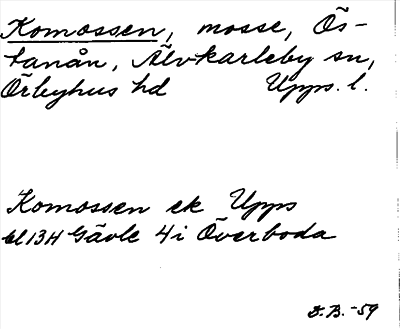 Komossen, mosse, Ös-
tanån, Älvkarleby sn,
Örbyhus hd Upps. l.
Komossen ek Upps
bl 13H Gävle 4i Överboda
S.B. -59